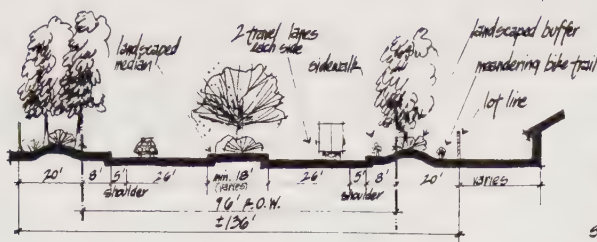 landscaped
median
2 travel lanes
each side
sidewalk
landscaped buffer
meandering bike trail
lot line
20' 8' 5' 26' min. 18' 26' 5' 8' 20' varies
shoulder (varies) shoulder
96' R.O.W.
±136'